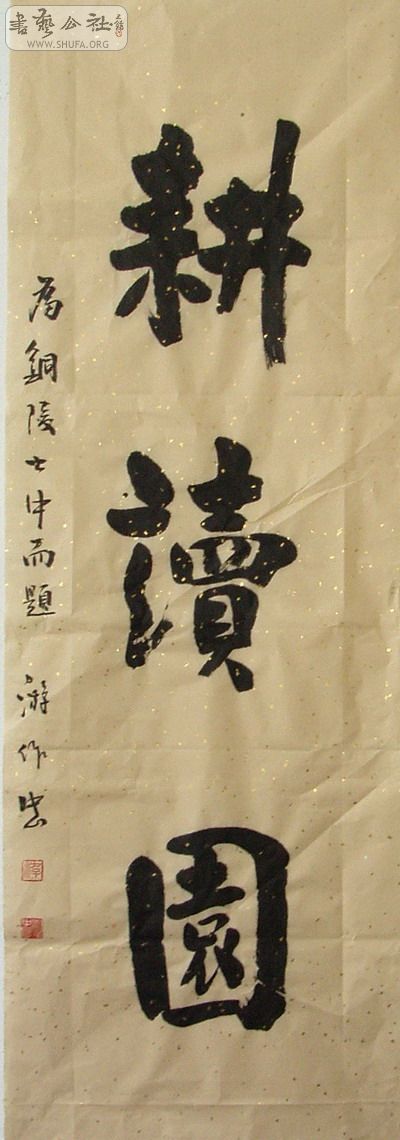 書藝公社
WWW.SHUFA.ORG
耕讀園
為銅陵七中而題
游作忠